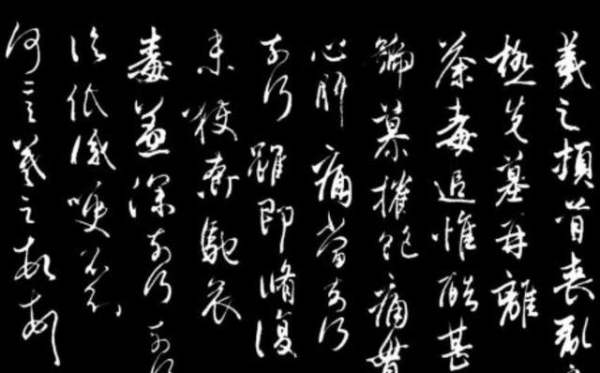 羲之頓首喪亂之
極先墓再離
荼毒追惟酷甚
號慕摧絕痛貫
心肝痛當奈何
奈何雖即脩復
未獲奔馳哀
毒益深奈何奈何
臨紙感哽不知
何言羲之頓首頓首